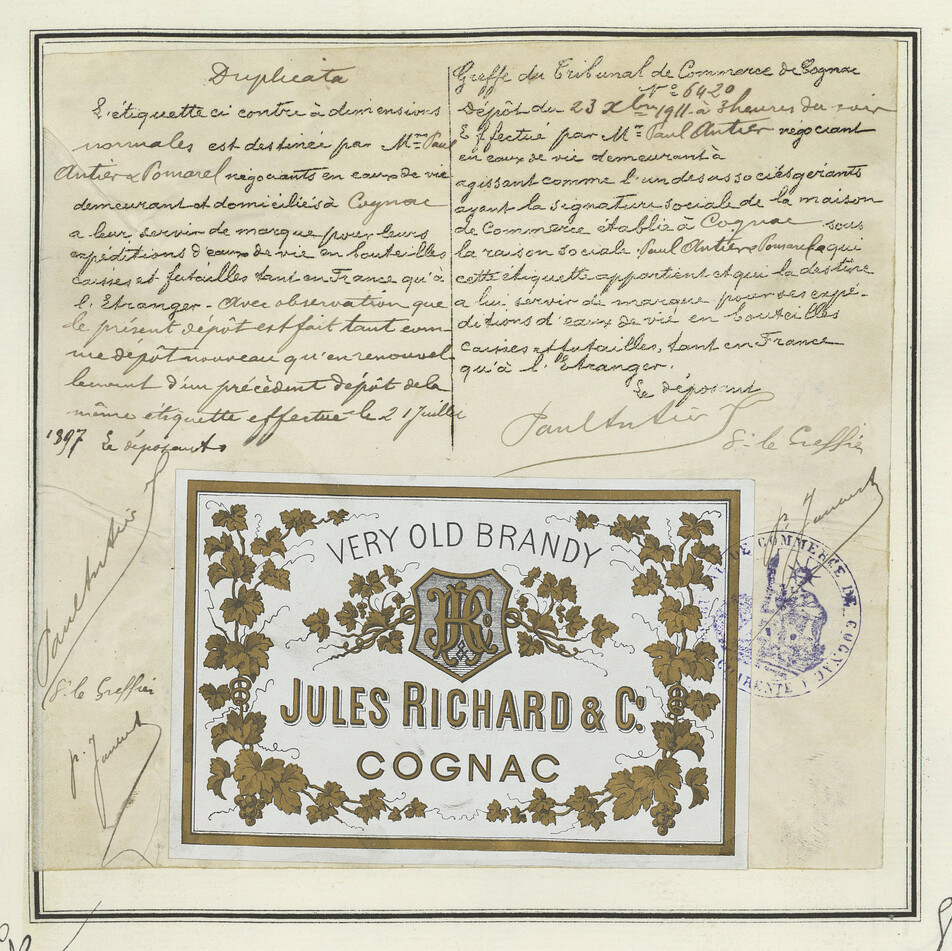 Duplicata
L'étiquette ci contre à dimensions
normales est destinée par Mrs Paul
Antier & Pomarel négociants en eaux de vie
demeurant et domiciliés à Cognac
a leur servir de marque pour leurs
expéditions d'eaux de vie en bouteilles
caisses et futailles tant en France qu'à
l'Etranger - Avec observation que
le présent dépôt est fait tant com-
me dépôt nouveau qu'en renouvel-
lement d'un précédent dépôt de la
même étiquette effectué le 21 Juillet
1897 Le déposant
Paul Antier
P. le Greffier
Greffe du Tribunal de Commerce de Cognac
No 6420
Dépôt du 23 Xbre 1911 à 3 heures du soir
Effectué par Mr Paul Antier négociant
en eaux de vie demeurant à
agissant comme l'un des associés gérants
ayant la signature sociale de la maison
de Commerce établie à Cognac sous
la raison sociale Paul Antier & Pomarel à qui
cette étiquette appartient et qui la destine
a lui servir de marque pour ses expé-
ditions d'eaux de vie en bouteilles
caisses et futailles, tant en France
qu'à l'Etranger.
Le déposant
Paul Antier
P. le Greffier
VERY OLD BRANDY
JULES RICHARD & Co.
COGNAC
DE COMMERCE DE COGNAC